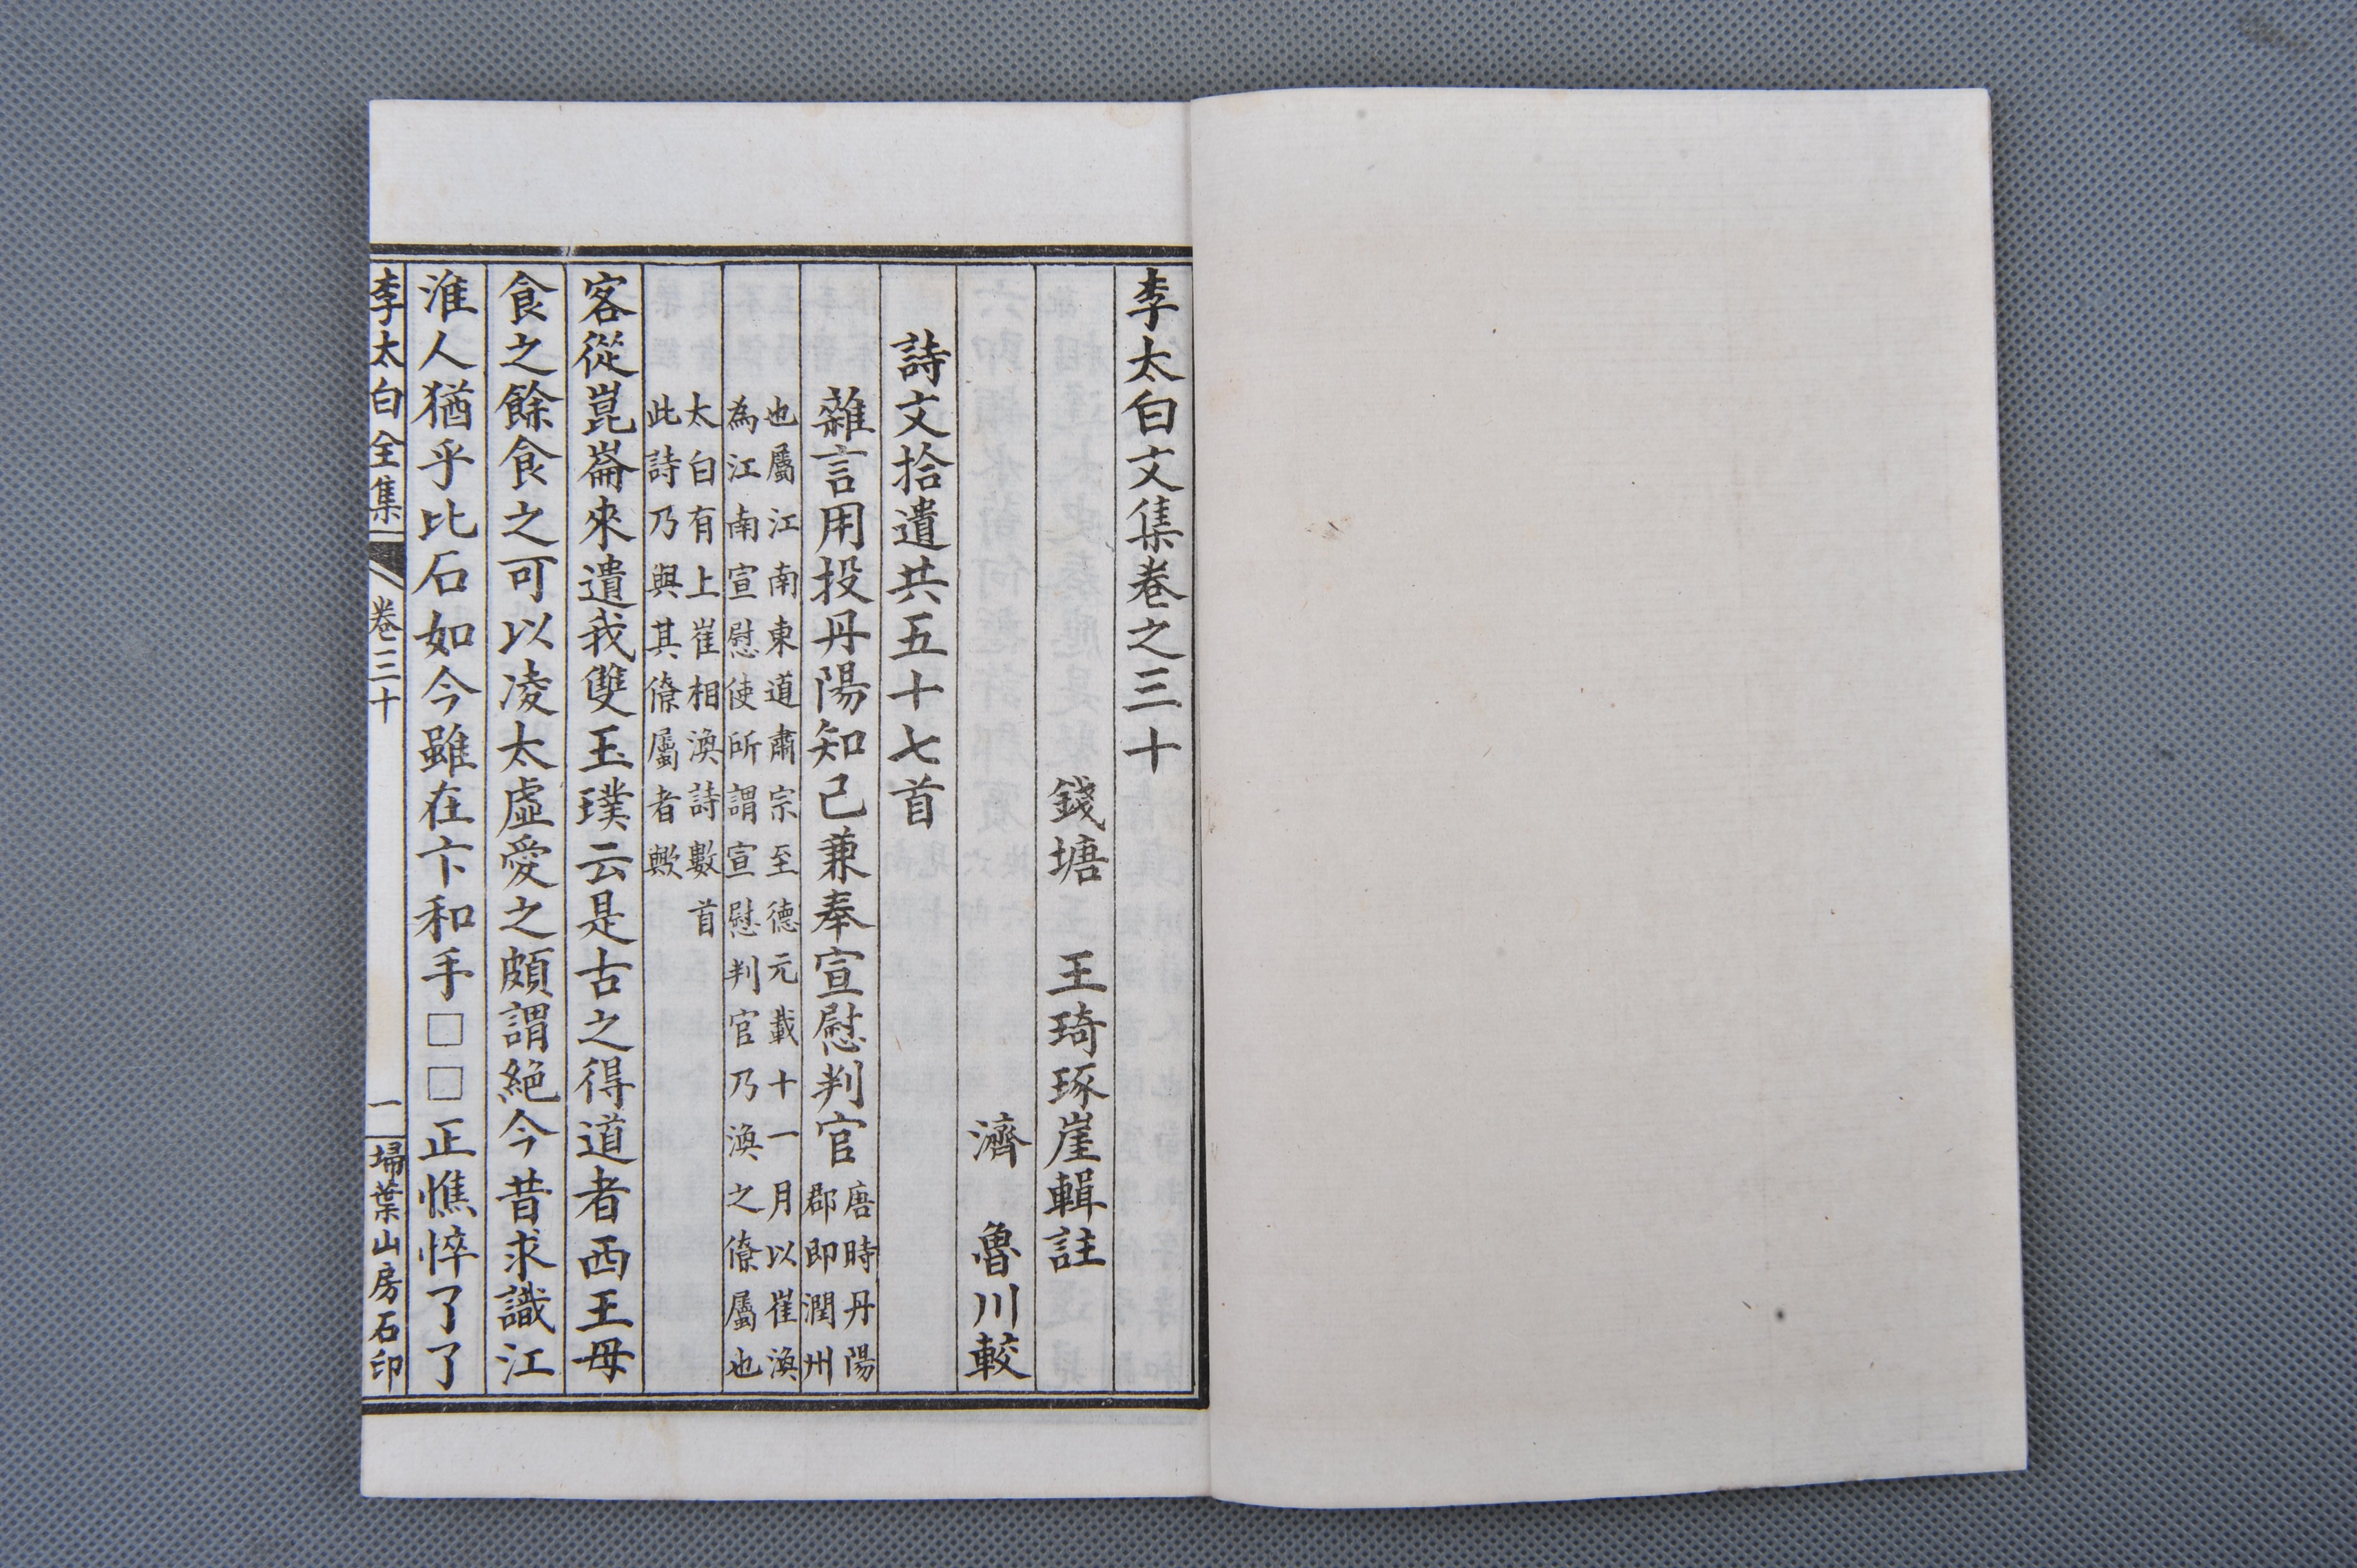 李太白文集卷之三十
錢塘 王琦琢崖輯註
濟 魯川較
詩文拾遺共五十七首
雜言用投丹陽知己兼奉宣慰判官 唐時丹陽
郡即潤州
也屬江南東道肅宗至德元載十一月以崔渙
為江南宣慰使所謂宣慰判官乃渙之僚屬也
太白有上崔相渙詩數首
此詩乃與其僚屬者歟
客從崑崙來遺我雙玉璞云是古之得道者西王母
食之餘食之可以凌太虛愛之頗謂絕今昔求識江
淮人猶乎比石如今雖在卞和手□□正憔悴了了
李太白全集 卷三十 一 埽葉山房石印